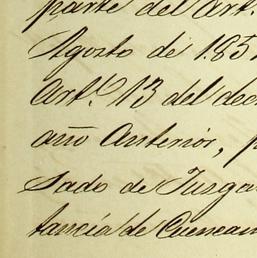 parte del Art.
Agosto de 185
Art.º 13 del dec
año Anterior,
sado de Juzga
tancia de Cuencam